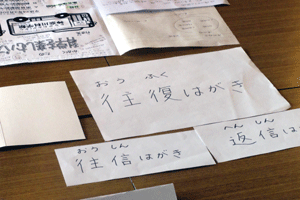 おう ふく
往復はがき
おう しん
往信はがき
へん しん
返信は